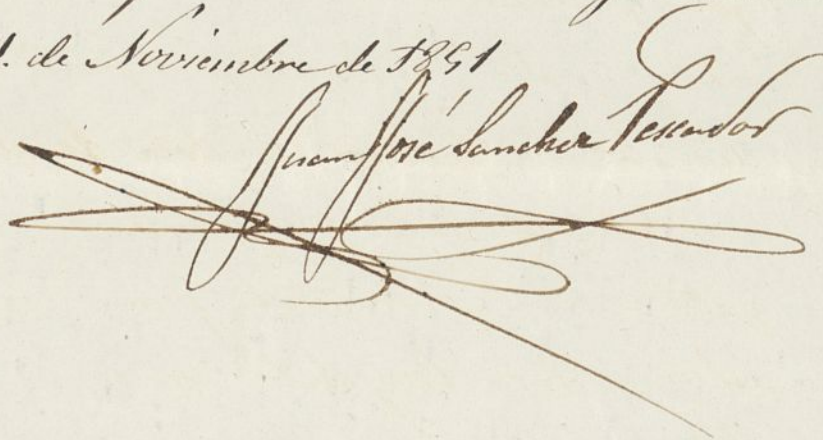 de Noviembre de 1851
Juan José Sanchez Pescador